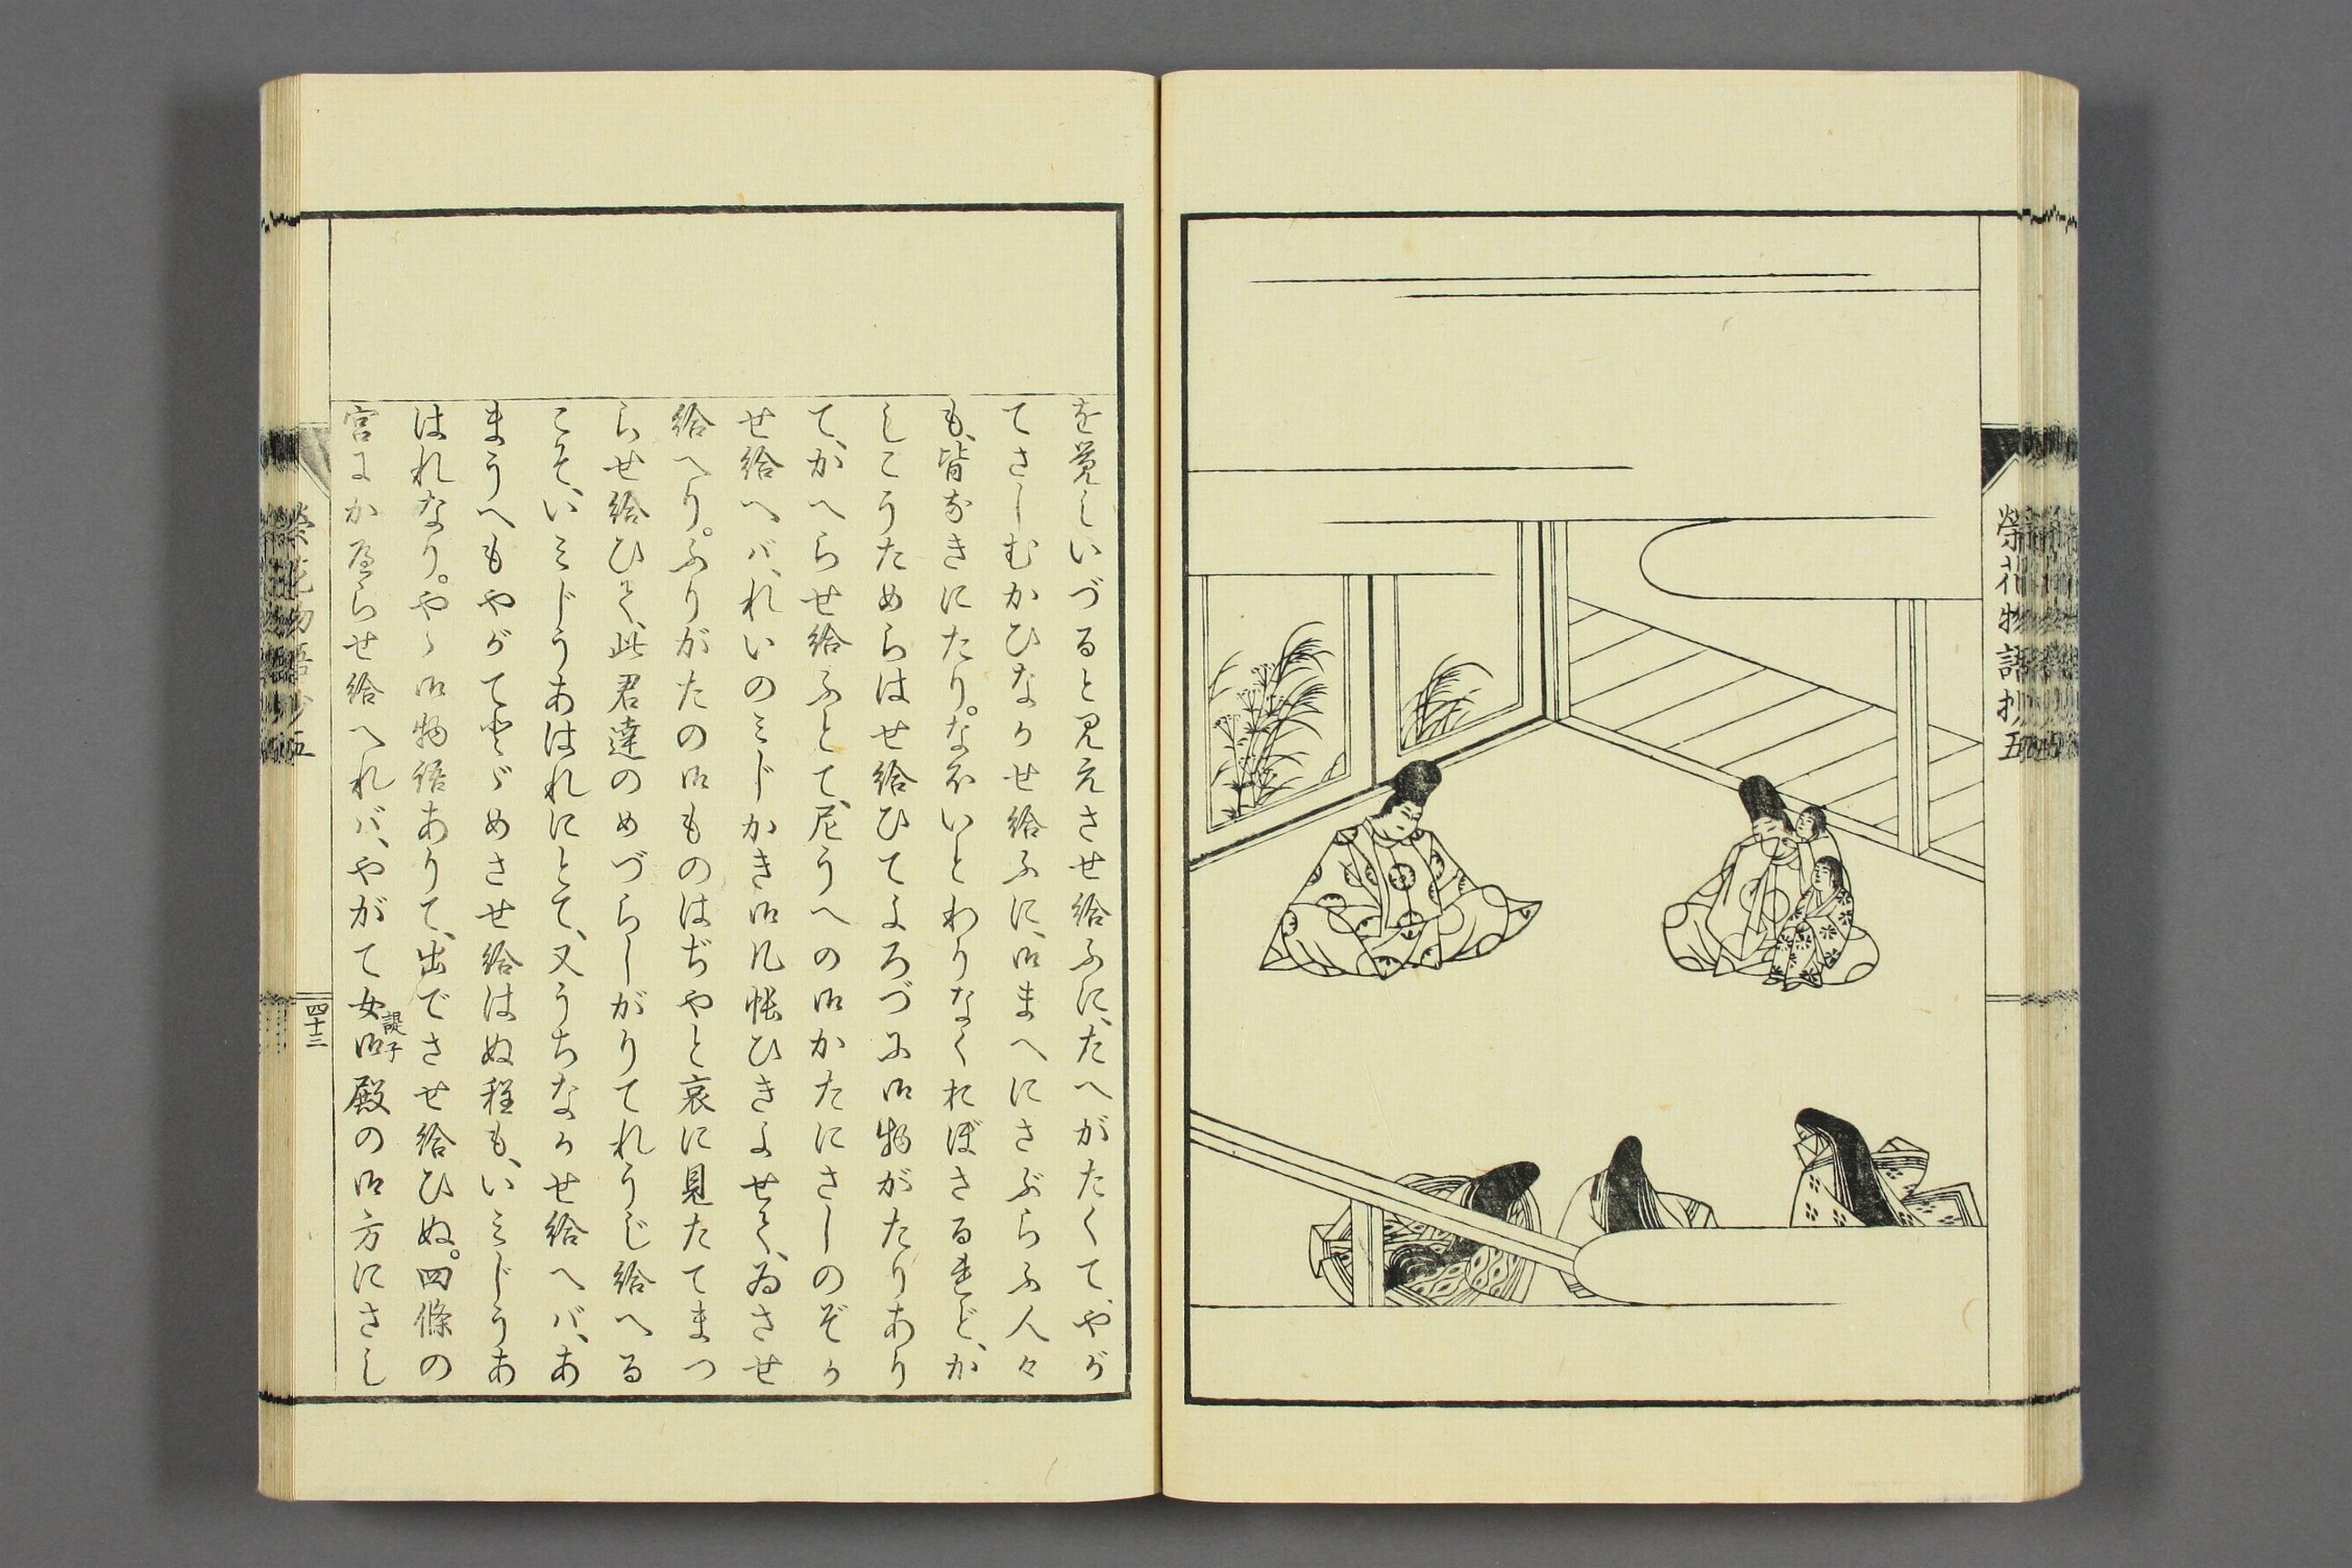 榮花物語抄五
を覚しいづると見えさせ給ふに、たへがたくて、やが
てさしむかひなかせ給ふに、御まへにさぶらふ人々
も、皆なきにたり。なおいとわりなくおぼさるれど、か
しこうためらはせ給ひてよろづに御物がたりあり
て、かへらせ給ふとて、尼うへの御かたにさしのぞか
せ給へバ、れいのみじかき御几帳ひきよせて、ゐさせ
給へり。ふりがたの御ものはぢやと哀に見たてまつ
らせ給ひて、此君達のめづらしがりてれうじ給へる
こそ、いみじうあはれにとて、又うちなかせ給へバ、あ
まうへもやがてとゞめさせ給はぬ程も、いみじうあ
はれなり。やゝ御物語ありて、出でさせ給ひぬ。四條の
宮にかへらせ給へれバ、やがて女御殿の御方にさし
諟子
四十三